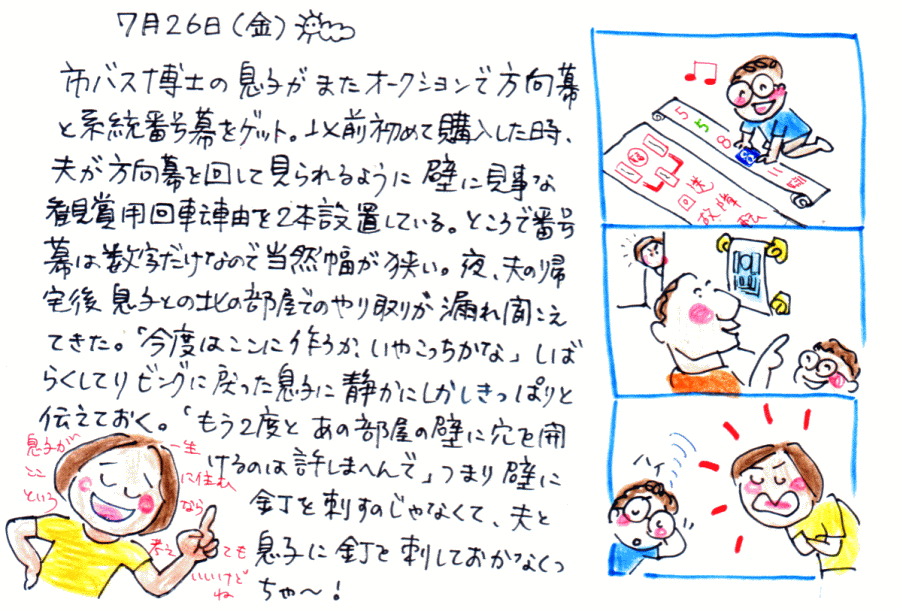 7月26日(金)
市バス博士の息子がまたオークションで方向幕
と系統番号幕をゲット。以前初めて購入した時、
夫が方向幕を回して見られるように壁に見事な
観賞用回転軸を2本設置している。ところで番号
幕は数字だけなので当然幅が狭い。夜、夫の帰
宅後息子との北の部屋でのやり取りが漏れ聞こえ
てきた。「今度はここに作ろか、いやこっちかな」しば
らくしてリビングに戻った息子に静かにしかしきっぱりと
伝えておく。「もう2度とあの部屋の壁に穴を開
けるのは許しまへんで」つまり壁に
釘を刺すのじゃなくて、夫と
息子に釘を刺しておかなくっ
ちゃ〜!
息子が
ここ
という
一生
に住む
なら
考え
ても
いいけど
ね
5
5
8
回送
故障
ハイ